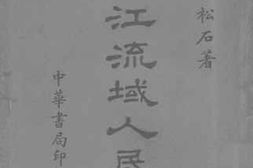 松石著
江流域人民
中華書局印